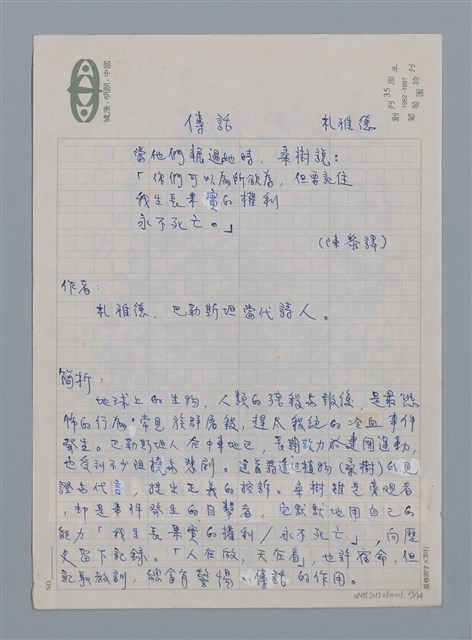 健康・明朗・中國
創刊35周年
1962-1997
葡萄園詩刊
傳話 札雅德
當他們輾過她時,桑樹說:
「你們可以為所欲為,但當記住
我生長果實的權利
永不死亡。」
(陳黎譯)
作者:
札雅德,巴勒斯坦當代詩人。
簡析:
地球上的生物,人類的殘殺與報復,是最恐
怖的行為,常見族群屠殺,趕盡殺絕的冷血事件
發生。巴勒斯坦人在中東地區,長期致力於建國運動,
也受到不少阻撓與悲劇。這首詩透過植物(桑樹)的見
證與代言,提出正義的控訴。桑樹雖是旁觀者
,卻是事件發生的目擊者,它默默地用自己的
能力「我生長果實的權利/永不死亡」,向歷
史留下記錄。「人在做,天在看」,也許宿命,但
記取教訓,總含有警惕、傳話的作用。
NO.